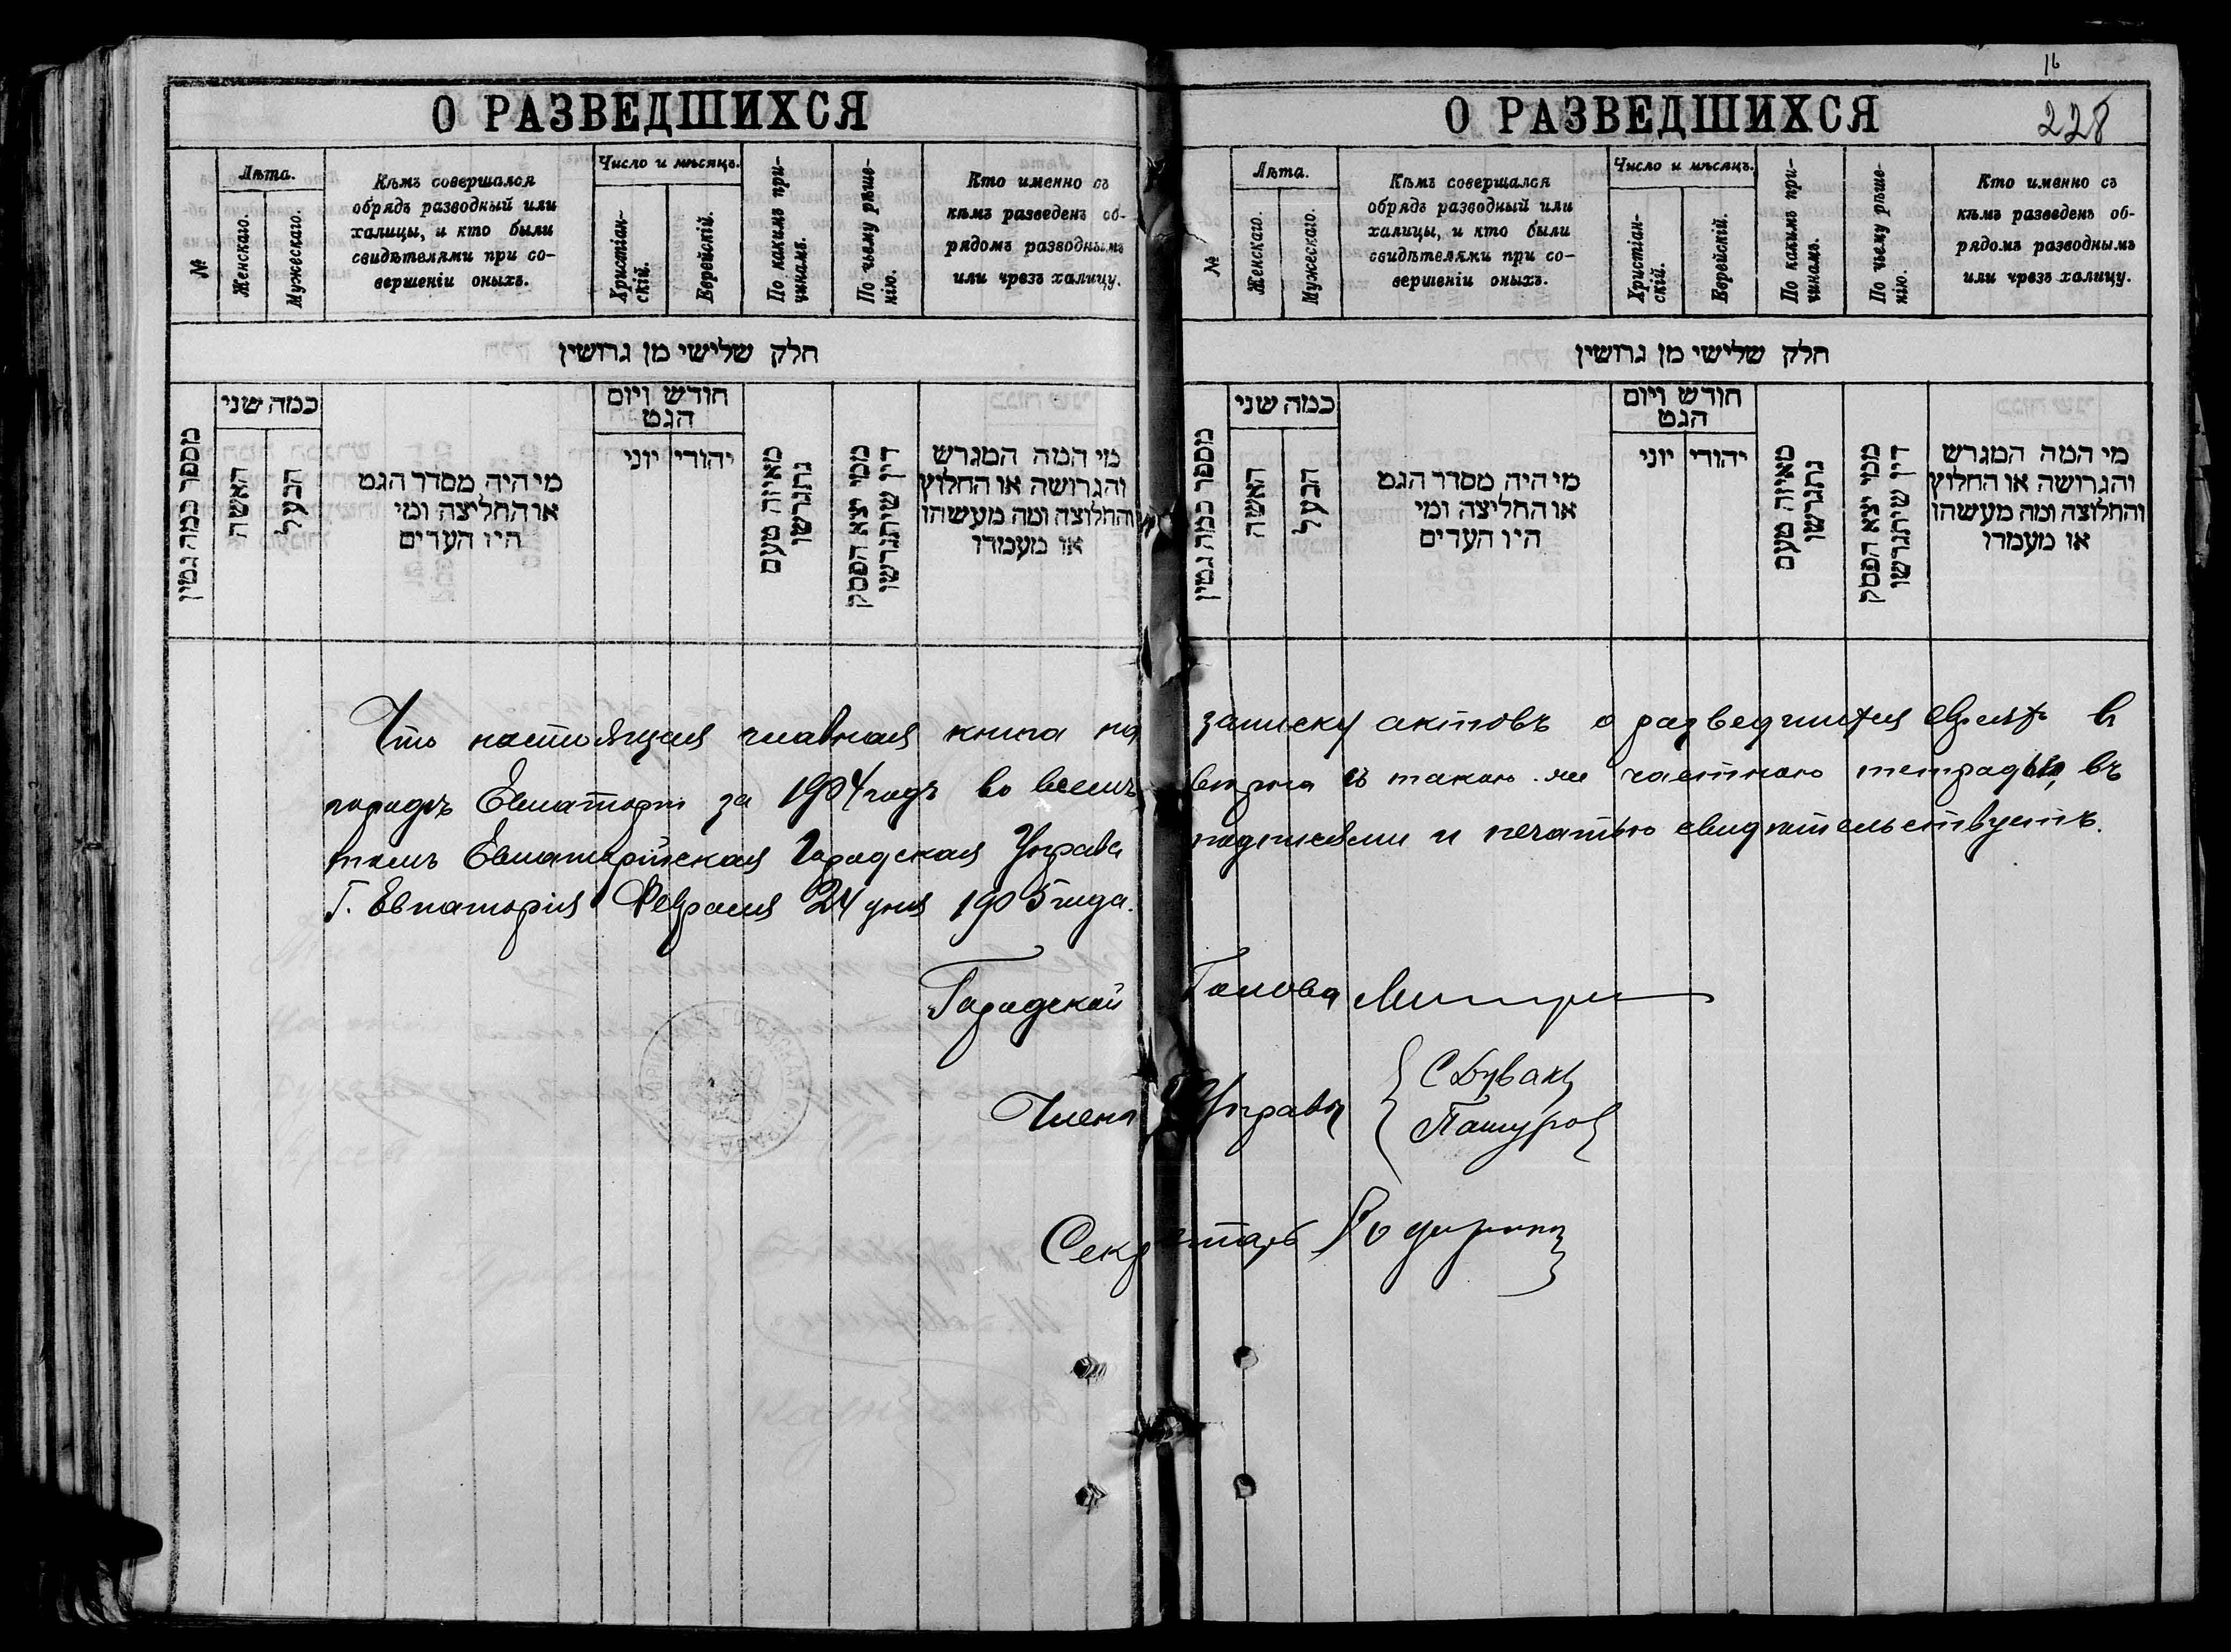 16
О РАЗВЕДШИХСЯ
№
Лѣта.
Женскаго.
Мужескаго.
Кѣмъ совершался
обрядъ разводный или
халицы, и кто были
свидѣтелями при со-
вершеніи оныхъ.
Число и мѣсяцъ.
Христіан-
скій.
Еврейскій.
По какимъ при-
чинамъ.
По чьему рѣше-
нію.
Кто именно съ
кѣмъ разведенъ об-
рядомъ разводнымъ
или чрезъ халицу.
חלק שלישי מן גרושין
מספר כמה גטין
כמה שני
האשה
הבעל
מי היה מסדר הגט
או החליצה ומי
היו העדים
חודש ויום
הגט
יוני
יהודי
מאיזה טעם
נתגרשו
ממי יצא הפסק
דין שיתגרשו
מי המה המגרש
והגרושה או החלוץ
והחלוצה ומה מעשהו
או מעמדו
О РАЗВЕДШИХСЯ
228
№
Лѣта.
Женскаго.
Мужескаго.
Кѣмъ совершался
обрядъ разводный или
халицы, и кто были
свидѣтелями при со-
вершеніи оныхъ.
Число и мѣсяцъ.
Христіан-
скій.
Еврейскій.
По какимъ при-
чинамъ.
По чьему рѣше-
нію.
Кто именно съ
кѣмъ разведенъ об-
рядомъ разводнымъ
или чрезъ халицу.
חלק שלישי מן גרושין
מספר כמה גטין
כמה שני
האשה
הבעל
מי היה מסדר הגט
או החליצה ומי
היו העדים
חודש ויום
הגט
יוני
יהודי
מאיזה טעם
נתגרשו
ממי יצא הפסק
דין שיתגרשו
מי המה המגרש
והגרושה או החלוץ
והחלוצה ומה מעשהו
או מעמדו
Что настоящая главная книга на записку актовъ о разведшихся евреяхъ в
городѣ Евпаторіи за 1904 годъ во всемъ вѣрна съ такою же частною тетрадью, въ
томъ Евпаторійская Городская Управа подписями и печатью свидѣтельствуетъ.
Г. Евпаторія Февраля 24 дня 1905 года.
Городской Голова
Члены Управы { С Дуванъ
Пашуров
Секретарь